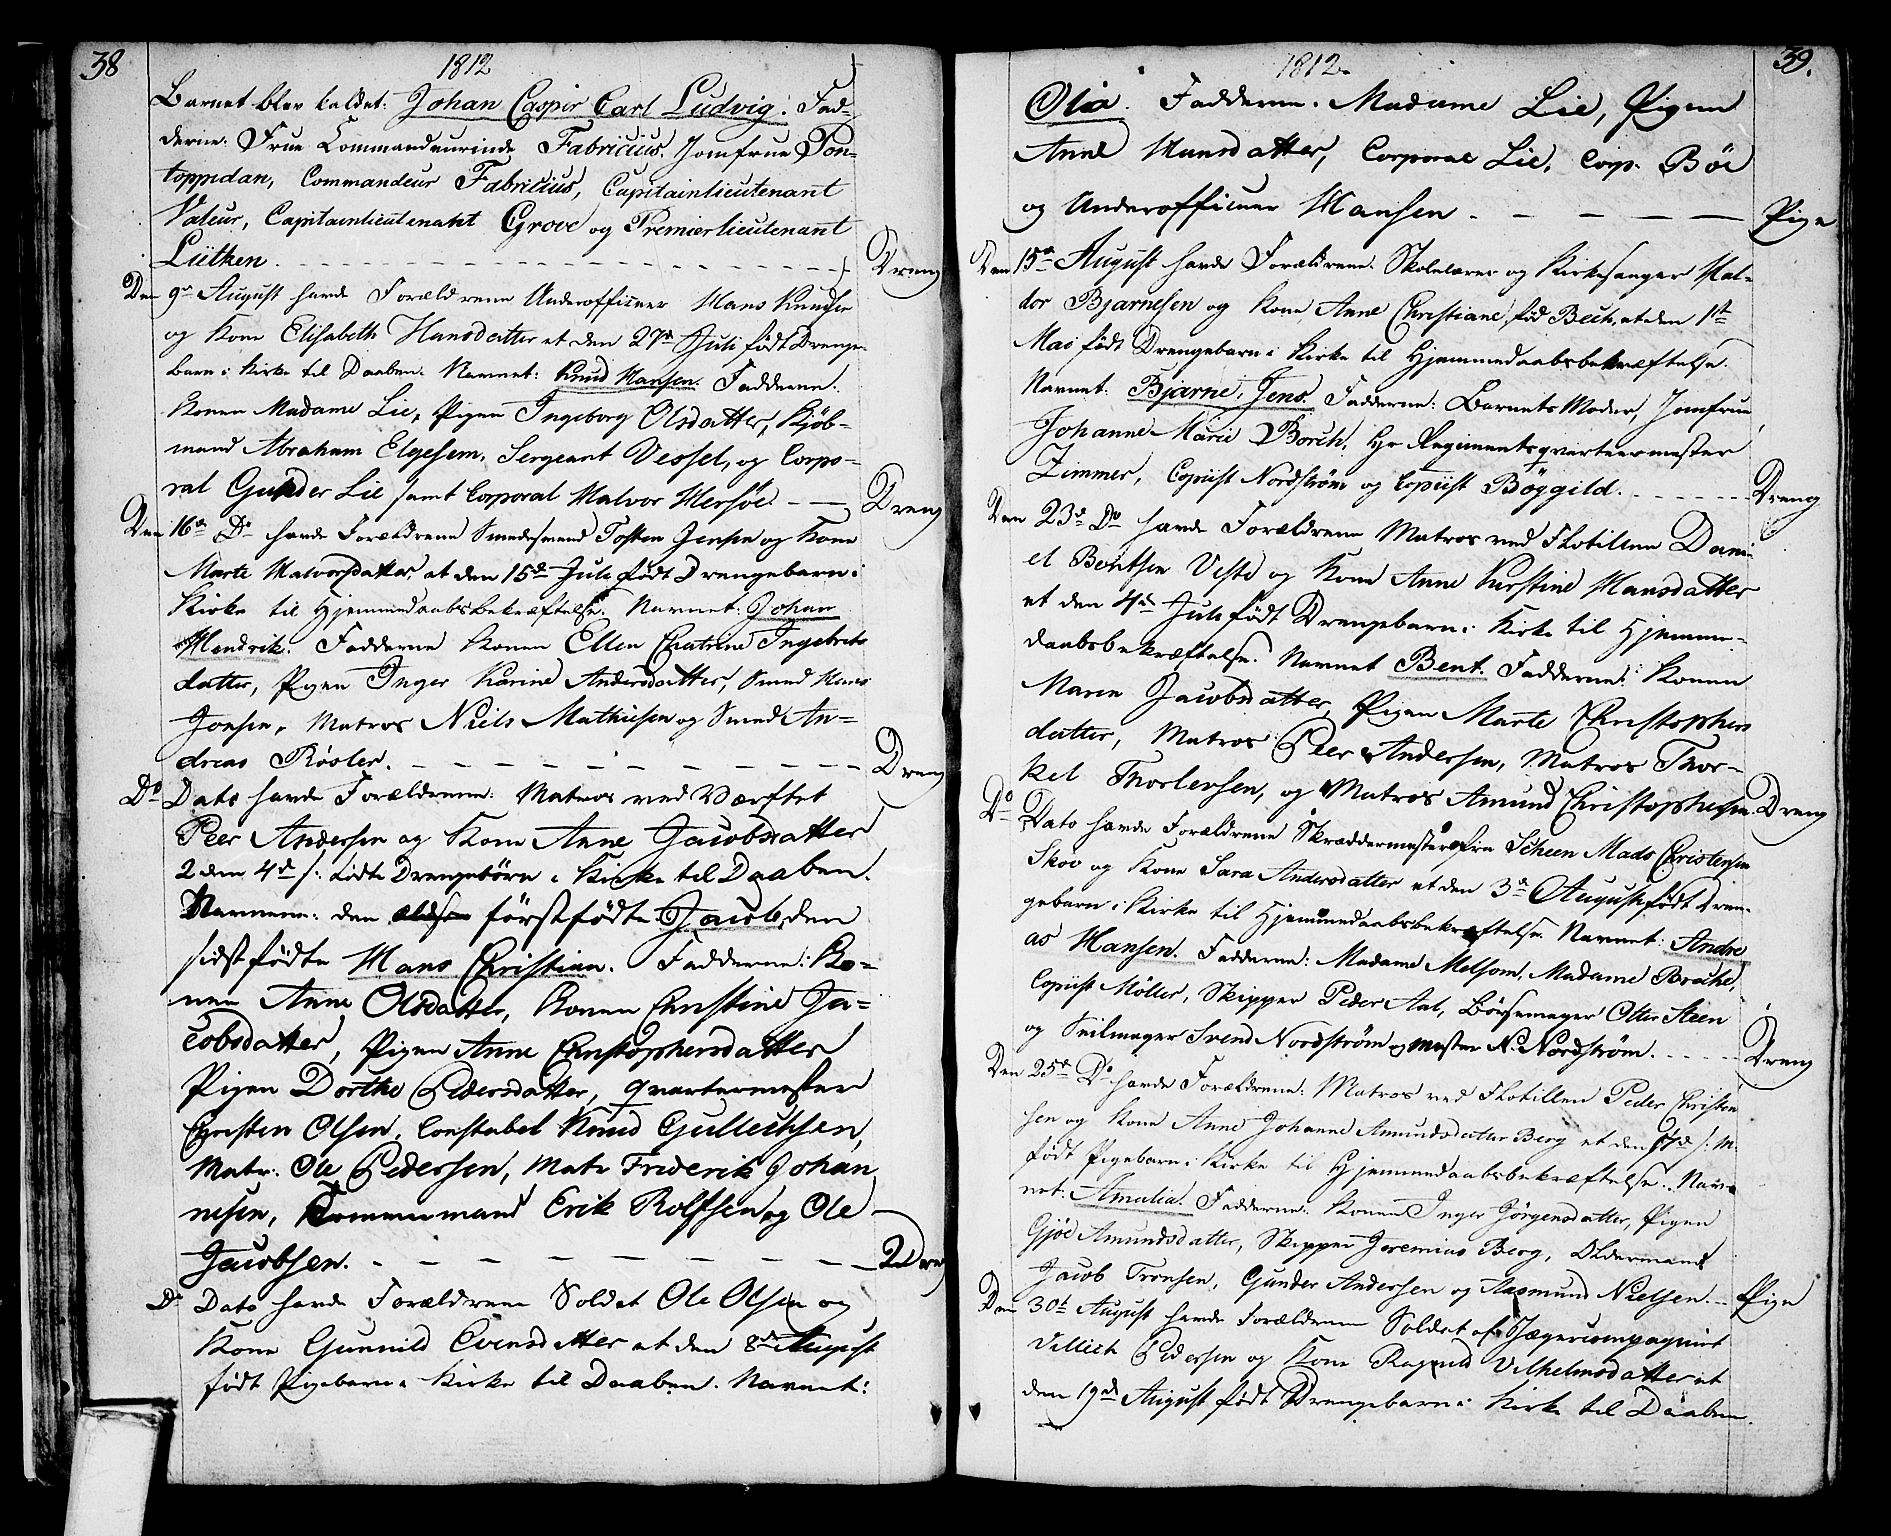 38
1812
Barnet blev kaldet: Johan Caspir Carl Ludvig. Fad-
derne: Frue Commandeurinde Fabricius. Jomfrue Pon-
toppidan, Commandeur Fabricius, Capitainlieutenant
Valeur, Capitainlieutenant Grove og Premierlieutenant
Lütken. Dreng
Den 9de August havde Forældrene Underofficeer Hans Knudsen
og Kone Elisabeth Hansdatter et den 27de Juli født Drenge-
barn i Kirke til Daaben. Navnet: Knud Hansen. Fadderne:
Konen Madame Lie, Pigen Ingeborg Olsdatter, Kjöb-
mand Abraham Elgesem, Sergeant Vessel, og Corpo-
ral Gunder Lie samt Corporal Halvor Hersöe. Dreng
Den 16de Do havde Forældrene Smedesvend Tosten Jensen og Kone
Marte Halvorsdatter, et den 15de Juli født Drengebarn i
Kirke til Hjemmedaabsbekræftelse. Navnet: Johan
Hendrik. Fadderne Konen Ellen Chatrine Ingebrets
datter, Pigen Inger Karine Andersdatter, Smed Hans
Jonsen, Matros Niels Mathiesen og Smed An-
dreas Røsler. Dreng
Do Dato havde Forældrene: Matros ved Værftet
Peer Andersen og Kone Anne Jacobsdatter
2 den 4de s: fødte Drengebörn i Kirke til Daaben.
Navnene: den förstfödte Jacob, den
sidstfødte Hans Christian. Fadderne: Ko-
nen Anne Olsdatter, Konen Christine Ja-
cobsdatter, Pigen Anne Christophersdatter
Pigen Dorthe Pedersdatter, Qvartermester
Christen Olsen, Constabel Knud Gulleichsen,
Matr: Ole Pedersen, Matr Friderik Johan
nesen, Tømmermand Erik Rolfsen og Ole
Jacobsen. 2 Dreng
Do Dato havde Forældrene Soldat Ole Olsen og
Kone Gunnild Evensdatter et den 8de August
født Pigebarn i Kirke til Daaben. Navnet:
39.
1812.
Olia. Fadderne: Madame Lie, Pigen
Anne Hansdatter, Corporal Lie, Corp. Böe
og Underofficeer Hansen. Pige
Den 15de August havde Forældrene Skolelærer og Kirkesanger Hal-
dor Bjarnesen og Kone Anne Christiane, fød Bech, et den 1ste
Mai født Drengebarn i Kirke til Hjemmedaabsbekræftelse.
Navnet: Bjarne, Jens. Fadderne: Barnets Moder, Jomfrue
Johanne Marie Borch, Hr Regimentsqvarteermester
Zimmer, Copiist Nordström og Copiist Böggild. Dreng
Den 23de Do havde Forældrene Matros ved Flotillen Dani-
el Bentsen Veste og Kone Anne Kirstine Hansdatter
et den 4de Juli født Drengebarn i Kirke til Hjemme-
daabsbekræftelse. Navnet Bent. Fadderne: Konen
Maren Jacobsdatter, Pigen Marte Christophers
datter, Matros Peer Andersen, Matros Thor-
kel Thorlevsen, og Matros Amund Christophersen. Dreng
Do Dato havde Forældrene Skræddermester fra Scheen Mads Christensen
Skov og Kone Sara Andersdatter et den 3de August født Dren-
gebarn i Kirke til Hjemmedaabsbekræftelse. Navnet: Andre
as Hansen. Fadderne: Madame Melsom, Madame Brache,
Copiist Möller, Skipper Peder Aal, Börsemager Otter Steen
og Seilmager Svend Nordström og Mester N. Nordström. Dreng
Den 25de Do havde Forældrene: Matros ved Flotillen Peder Christen
sen og Kone Anne Johanne Amundsdatter Berg et den 17de s: M.
født Pigebarn i Kirke til Hjemmedaabsbekræftelse. Nav-
net: Amalia. Fadderne: Konen Inger Jörgensdatter, Pigen
Gjöe Amundsdatter, Skipper Jeremias Berg, Oldermand
Jacob Tronsen, Gunder Andersen og Aasmund Nielsen. Pige
Den 30te August havde Forældrene Soldat af Jægercompagniet
Villich Pedersen og Kone Ragnild Vilhelmsdatter et
den 19de August født Drengebarn i Kirke til Daaben.